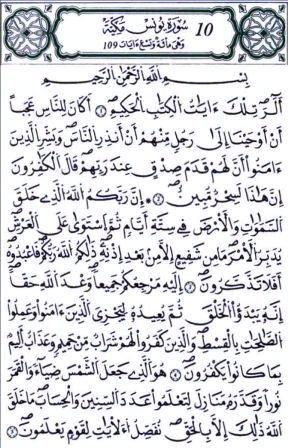 10 سُورَةُ يُونُسَ مَكِّيَّةٌ
وَهِيَ مِائَةٌ وَتِسْعُ ءَايَاتٍ 109
بِسْمِ اللَّهِ الرَّحْمَٰنِ الرَّحِيمِ
أَلَٓرۖ تِلْكَ ءَايَٰتُ الْكِتَٰبِ الْحَكِيمِۖ ١ أَكَانَ لِلنَّاسِ عَجَبًا
أَنْ أَوْحَيْنَآ إِلَىٰ رَجُلٍ مِّنْهُمْ أَنْ أَنذِرِ النَّاسَۖ وَبَشِّرِ الَّذِينَ
ءَامَنُوٓا أَنَّ لَهُمْ قَدَمَ صِدْقٍ عِندَ رَبِّهِمْۖ قَالَ الْكَٰفِرُونَ
إِنَّ هَٰذَا لَسِحْرٌ مُّبِينٌۖ ٢ إِنَّ رَبَّكُمُ اللَّهُ الَّذِي خَلَقَ
السَّمَٰوَٰتِ وَالْأَرْضَ فِي سِتَّةِ أَيَّامٍ ثُمَّ اسْتَوَىٰ عَلَى الْعَرْشِۖ
يُدَبِّرُ الْأَمْرَۖ مَا مِن شَفِيعٍ إِلَّا مِنۢ بَعْدِ إِذْنِهِۖ ذَٰلِكُمُ اللَّهُ رَبُّكُمْ فَاعْبُدُوهُۖ
أَفَلَا تَذَّكَّرُونَۖ ٣ إِلَيْهِ مَرْجِعُكُمْ جَمِيعًاۖ وَعْدَ اللَّهِ حَقًّاۖ
إِنَّهُ يَبْدَؤُا الْخَلْقَ ثُمَّ يُعِيدُهُ لِيَجْزِيَ الَّذِينَ ءَامَنُوا وَعَمِلُوا
الصَّٰلِحَٰتِ بِالْقِسْطِۖ وَالَّذِينَ كَفَرُوا لَهُمْ شَرَابٌ مِّنْ حَمِيمٍ وَعَذَابٌ أَلِيمٌۢ
بِمَا كَانُوا يَكْفُرُونَۖ ٤ هُوَ الَّذِي جَعَلَ الشَّمْسَ ضِيَآءً وَالْقَمَرَ
نُورًا وَقَدَّرَهُ مَنَازِلَ لِتَعْلَمُوا عَدَدَ السِّنِينَ وَالْحِسَابَۖ مَا خَلَقَ
اللَّهُ ذَٰلِكَ إِلَّا بِالْحَقِّۖ نُفَصِّلُ الْأٓيَٰتِ لِقَوْمٍ يَعْلَمُونَۖ ٥